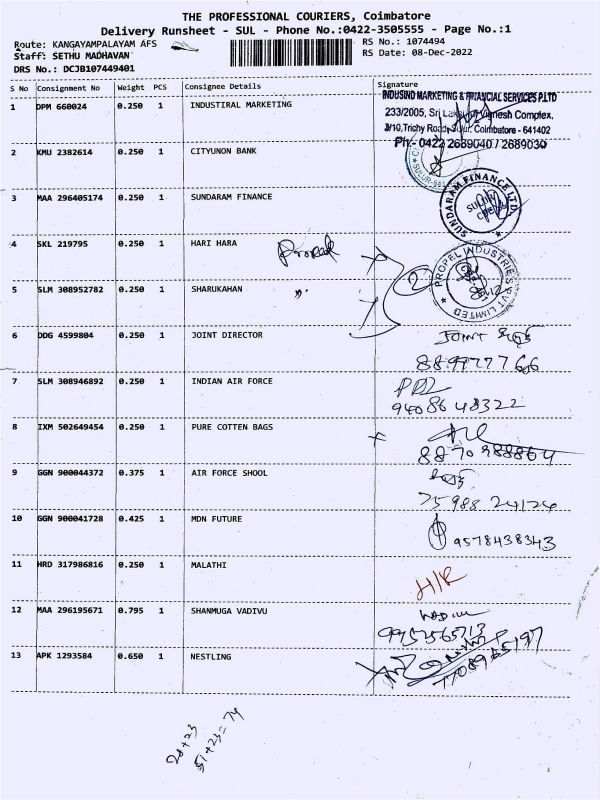 THE PROFESSIONAL COURIERS, Coimbatore
Delivery Runsheet - SUL - Phone No.:0422-3505555 - Page No.:1
Route: KANGAYAMPALAYAM AFS
RS No.: 1074494
Staff: SETHU MADHAVAN
RS Date: 08-Dec-2022
DRS No.: DCJB107449401
S No Consignment No Weight PCS Consignee Details Signature
1 DPM 660024 0.250 1 INDUSTIRAL MARKETING
INDUSIND MARKETING & FINANCIAL SERVICES P.LTD
233/2005, Sri Lakshmi Vignesh Complex,
3/10, Trichy Road, Sulur, Coimbatore - 641402
Ph:- 0422 2689040 / 2689030
2 KMU 2382614 0.250 1 CITYUNON BANK
3 MAA 296405174 0.250 1 SUNDARAM FINANCE
SUNDARAM FINANCE LTD.
4 SKL 219795 0.250 1 HARI HARA
Propel
PROPEL INDUSTRIES PVT LIMITED
5 SLM 308952782 0.250 1 SHARUKAHAN
2
6 DDG 4599804 0.250 1 JOINT DIRECTOR
Joint
7 SLM 308946892 0.250 1 INDIAN AIR FORCE
94086 48322
8 IXM 502649454 0.250 1 PURE COTTEN BAGS
8870988864
9 GGN 900044372 0.375 1 AIR FORCE SHOOL
75988 24124
10 GGN 900041728 0.425 1 MDN FUTURE
9578438343
11 HRD 317986816 0.250 1 MALATHI
H/R
12 MAA 296195671 0.795 1 SHANMUGA VADIVU
13 APK 1293584 0.650 1 NESTLING
28+23
51+23=74